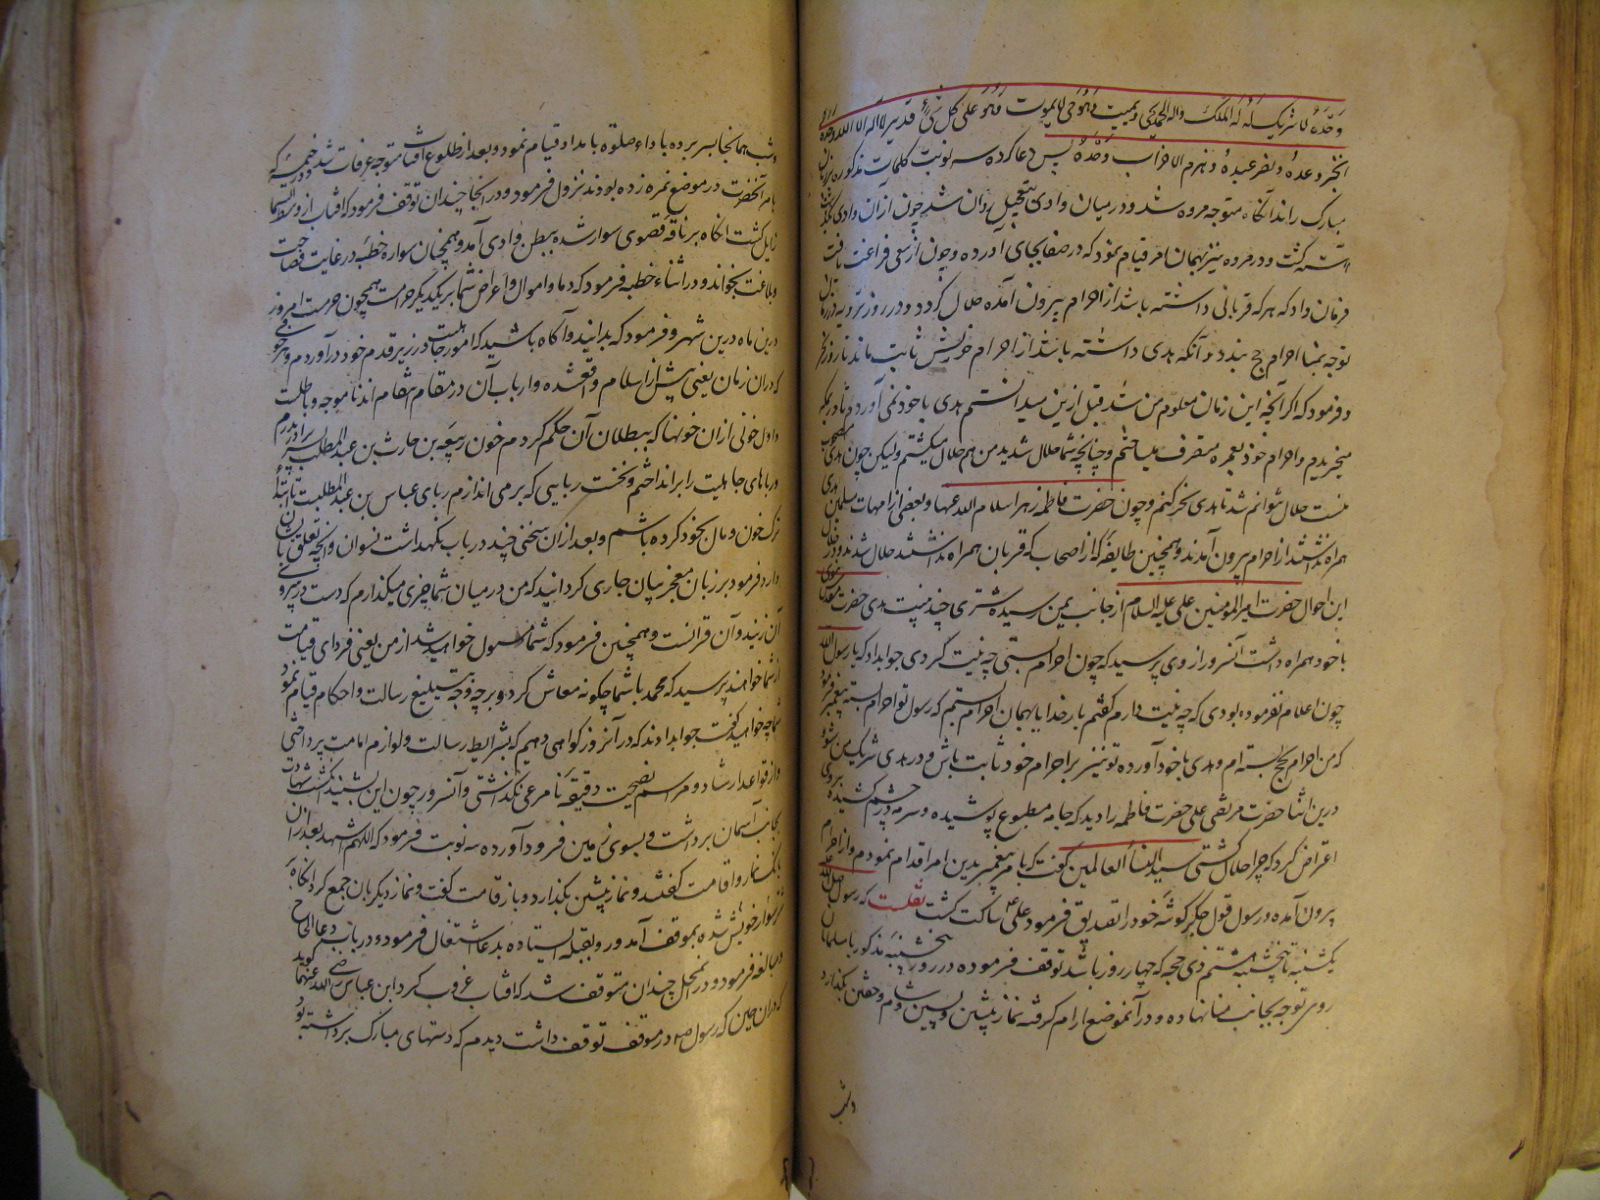 وحده لا شریک له له الملک وله الحمد یحیی ویمیت وهو حی لا یموت وهو علی کل شیء قدیر لا اله الا الله وحده
انجز وعده ونصر عبده وهزم الاحزاب وحده پس دعا کرده سه نوبت کلمات مذکوره بر زبان
مبارک راند آنکاه متوجه مروه شد ودر میان وادی بتعجیل روان شد چون از آن وادی بگذشت
آهسته گشت ودر مروه نیز بهمان امر قیام نمود که در صفا بجای آورده وچون از سعی فراغت یافت
فرمان داد که هر که قربانی نداشته باشد از احرام بیرون آمده حلال کردد ودر روز ترویه
توجه بمنا احرام حج بندد وآنکه هدی داشته باشد از احرام خویش ثابت ماند تا روز نحر
وفرمود که اکر آنچه این زمان معلوم من شد قبل ازین میدانستم هدی با خود نمی آوردم تا در مکه
میخریدم واحرام خود بعمره مصرف میساختم وچنانچه شما حلال شدید من هم حلال میکشتم ولیکن چون هدی مصحوب
منست حلال نتوانم شد تا هدی نحر کنم وچون حضرت فاطمه زهرا سلام الله عنها وبعضی از امهات مسلمین هدی
همراه نداشتند از احرام بیرون آمدند وهمچنین طایفه که از اصحاب که قربان همراه نداشتند حلال شدند ودر خلال
این احوال حضرت امیرالمومنین علی علیه السلام از جانب یمن رسیده شتری چند بنیت هدی حضرت مقدس نبوی
با خود همراه داشت آنسرور از وی پرسید که چون احرام بستی چه نیت کردی جواب داد که یا رسول الله
چون اعلام نفرموده بودی که چه نیت دارم کفتم بار خدایا بهمان احرام بستم که رسول تو احرام بسته پیغمبر فرمود
که من احرام بحج بسته ام وهدی با خود آورده تو نیز بر احرام خود ثابت باش ودر هدی شریک من شو
درین اثنا حضرت مرتضی علی حضرت فاطمه را دید که جامه مطبوع پوشیده وسرمه در چشم کشیده بروی
اعتراض کرد که چرا حلال گشتی سیدة النساء العالمین گفت که بامر پیغمبر بدین امر اقدام نمودم واز احرام
بیرون آمده ورسول قول جگر گوشه خود را تصدیق فرمود علی ساکت گشت نقلست که رسول صلی الله
یکشنبه تا پنجشنبه هشتم ذی حجه که چهار روز باشد توقف فرموده در روز پنجشنبه مذکور با مسلمانان
روی توجه بجانب منا نهاده ودر آنموضع ارام گرفته نماز پیشین وپسین وشام وخفتن بگذارد
وشب
وشب همانجا بسر برده باداء صلوة بامداد قیام نمود وبعد از طلوع آفتاب متوجه عرفات شد ودر خیمه که
بامر آنحضرت در موضع نمره زده بودند نزول فرمود ودر آنجا چندان توقف فرمود که افتاب از وسط السما
زایل گشت انکاه بر ناقه قصوی سوار شده ببطن وادی آمد وهمچنان سواره خطبه در غایت فصاحت
وبلاغت بخواند ودر اثناء خطبه فرمود که دما واموال واعراض شما بر یکدیگر حرامست همچون حرمت امروز
درین ماه درین شهر وفرمود که بدانید وآگاه باشید که امور جاهلیت در زیر قدم خود در آوردم وهر خونی
که دران زمان یعنی پیش از اسلام واقع شده وارباب آن در مقام انتقام اند نا موجه وباطلست
واول خونی ازان خونها که ببطلان آن حکم کردم خون ربیعه بن حارث بن عبدالمطلب برادر پدرم
ورباهای جاهلیت را بر انداختم ونخست ربایی که بر می اندازم ربای عباس بن عبدالمطلبست تا ابتدا
ترک خون ومال بخود کرده باشم وبعد ازان سخنی چند در باب نگهداشت نسوان وآنچه تعلق بایشان
دارد فرمود بر زبان معجز بیان جاری گردانید که من در میان شما چیزی میگذارم که دست در پیروی
آن زنید وآن قرآنست وهمچنین فرمود که شما مسول خواهید شد از من یعنی فردای قیامت
از شما خواهند پرسید که محمد با شما چگونه معاش کرد وبر چه وجه تبلیغ رسالت واحکام قیام نمود
شما چه خواهید گفت جواب دادند که در آنروز گواهی دهیم که بشرایط رسالت ولوازم امامت پرداختی
واز قواعد ارشاد ومراسم نصیحت دقیقه نا مرعی نگذاشتی وآنسرور چون این بشنید انگشت شهادت
بجانب آسمان برداشت وبسوی زمین فرود آورده سه نوبت فرمود که اللهم اشهد بعد ازان
بانک نماز واقامت گفتند ونماز پیشین بگذارد وباز قامت گفت ونماز دیگر بان جمع کرد انگاه بر
شتر سوار خویش شده بموقف آمد ورو بقبله ایستاده بدعا اشتغال فرمود ودر باب دعا الحاح
ومبالغه فرمود ودر آنمحل چندان متوقف شد که افتاب غروب کرد ابن عباس رضی الله عنهما گوید
که دران حین که رسول در موقف توقف داشت دیدم که دستهای مبارک برداشته بود